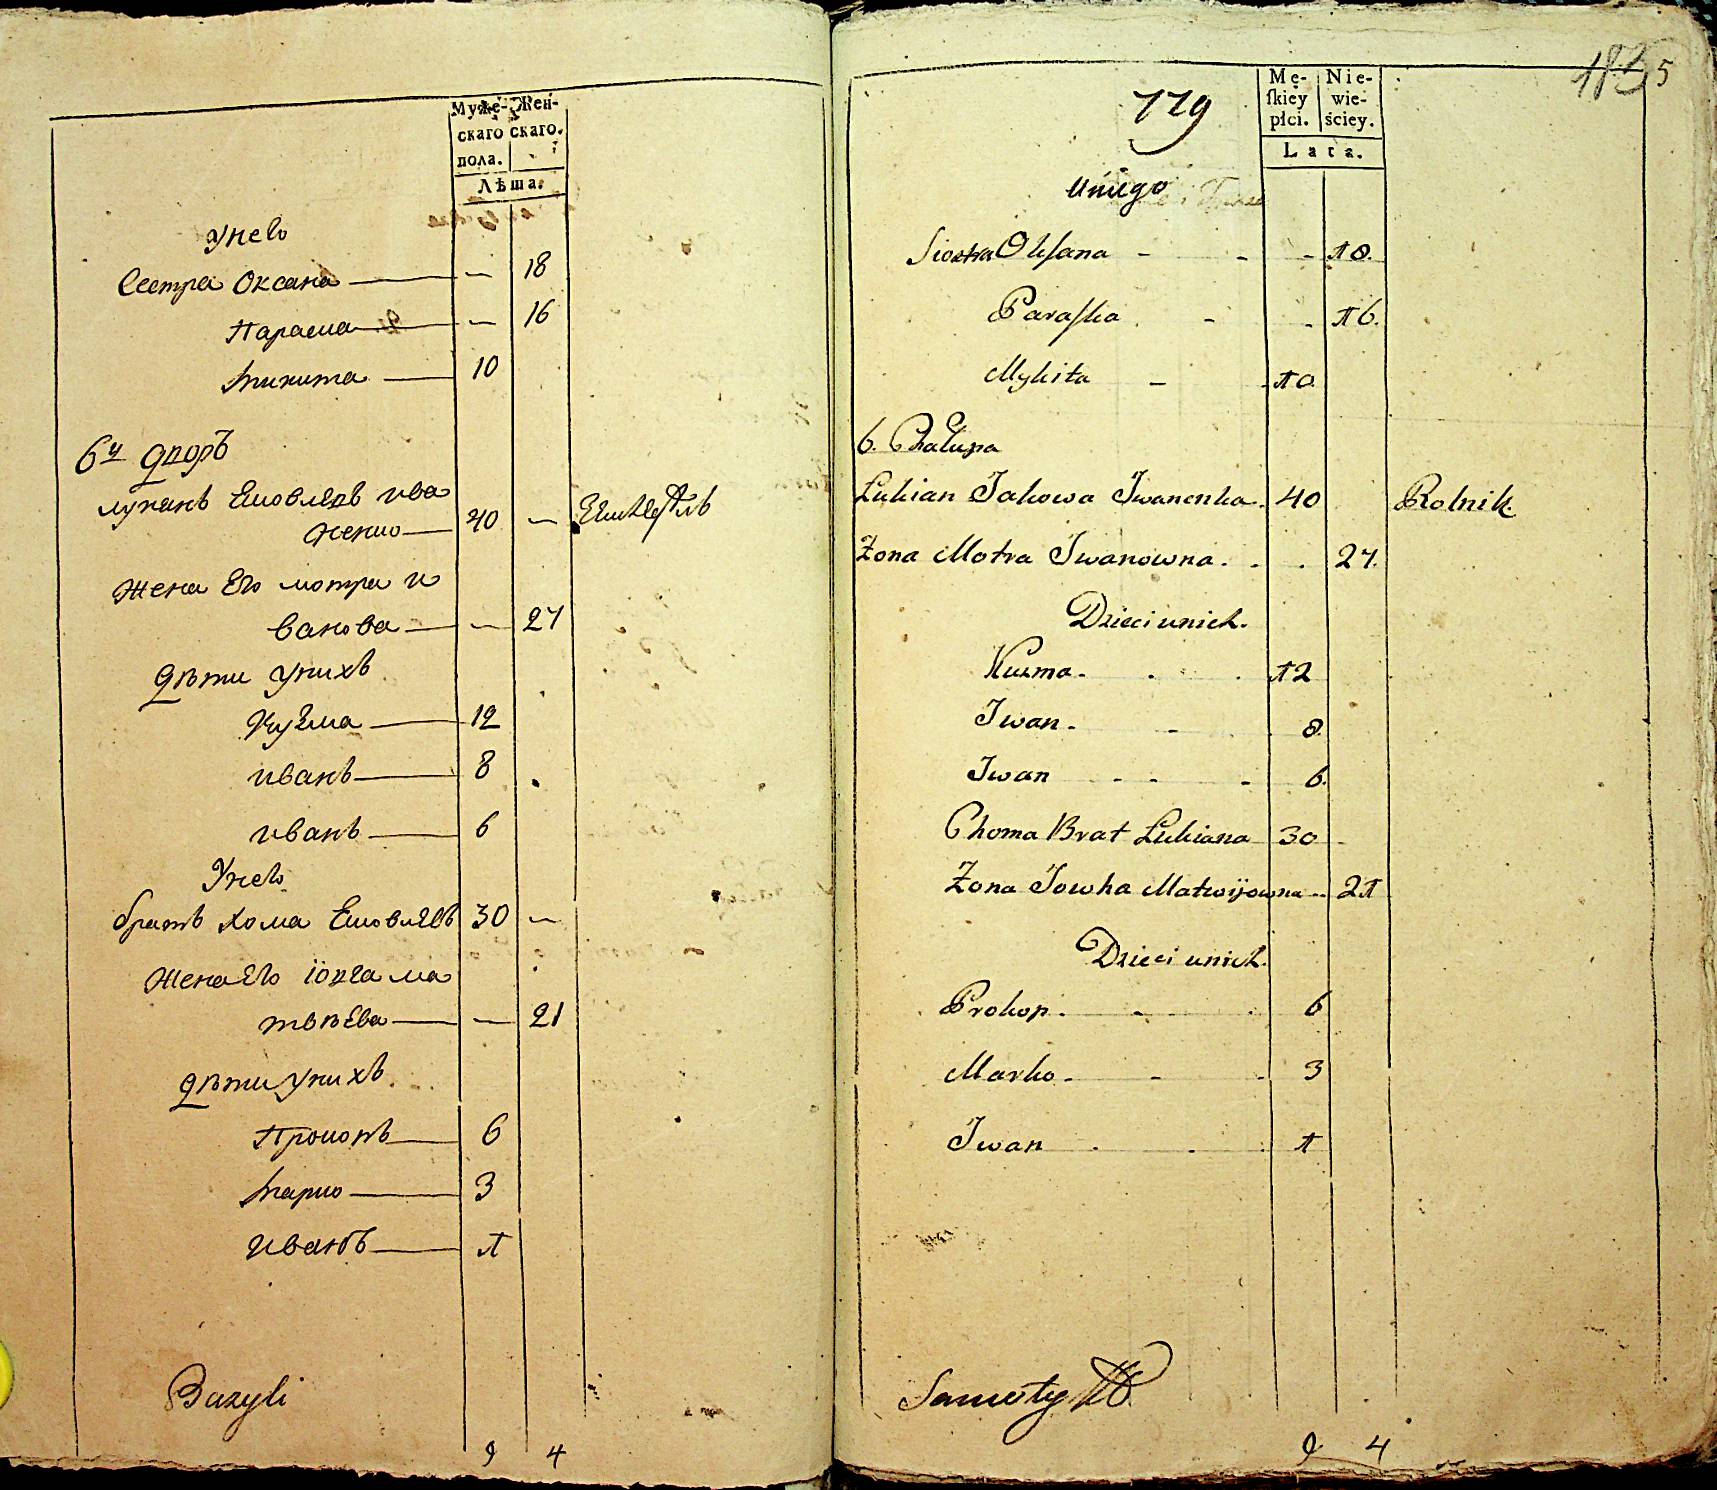 Муже- Жен-
скаго скаго.
пола.
Лѣта.
Унего
Сестра Оксана — 18
Параска — 16
Микита 10
6й дворъ
лукянъ Яковлевъ ива
ненко 40 —
Жена Его мотра и
ванова — 27
дѣти унихъ
Кузма 12
иванъ 8
иванъ 6
Унего
братъ хома Яковлевъ 30 —
Жена Его іовга ма
твѣева — 21
дѣти унихъ
Прокопъ 6
Марко 3
иванъ 1
Bazyli
9 4
185
119
Mę- Nie-
skiey wie-
płci. ściey.
Lata.
Uniego
Siostra Oksana - - - 18.
Paraska - - 16.
Mykita - 10
6. Chałupa
Lukian Jakowa Iwanenka. 40 Rolnik.
Żona Motra Iwanowna. . . 27.
Dzieci unich.
Kuzma. . . 12
Iwan. - 8.
Iwan - - - 6.
Choma Brat Lukiana 30 -
Żona Jowha Matwijowna - - 21
Dzieci unich.
Prokop. - . 6
Marko. - - 3
Iwan . . . 1
9 4